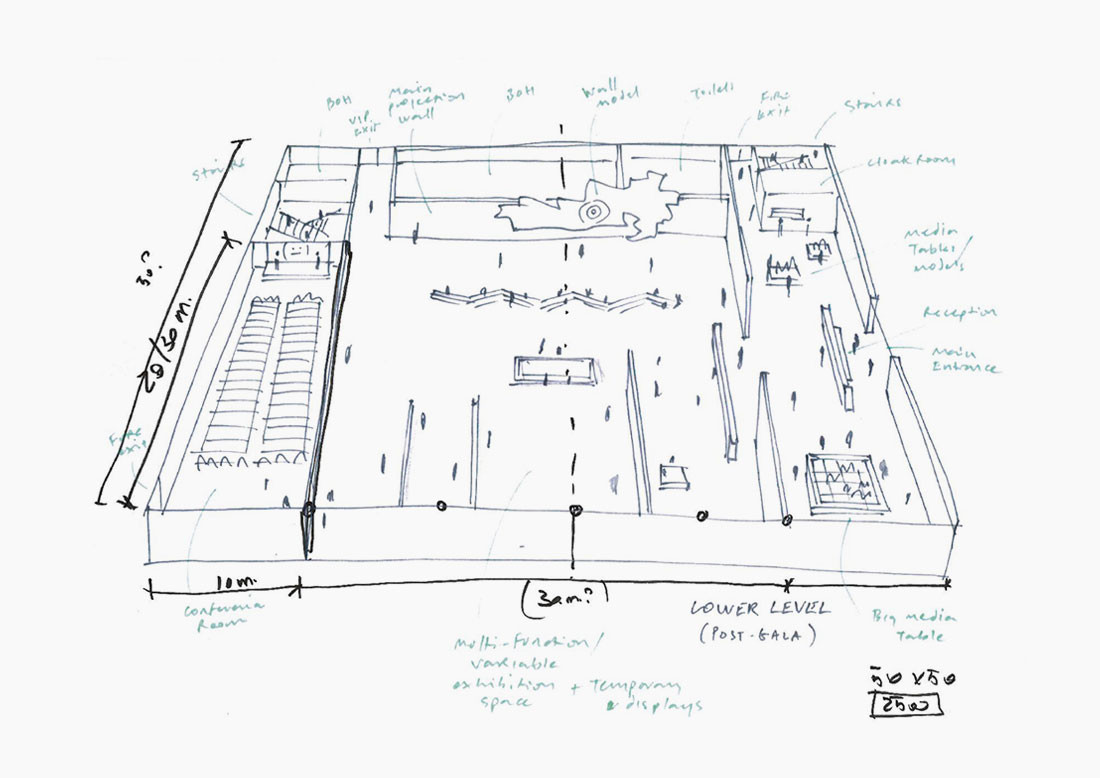 BOH
VIP
Exit
Main
projection
wall
BOH
Wall
model
Toilets
Fire
Exit
Stairs
Stairs
Cloak Room
30?
20/30 m.
Media
Tables/
Models
Reception
Main
Entrance
Fire
exit
10m.
(30m?)
Conference
Room
LOWER LEVEL
(POST-GALA)
Big media
Table
Multi-function/
variable
exhibition + Temporary
space & displays
50 x 50
2500